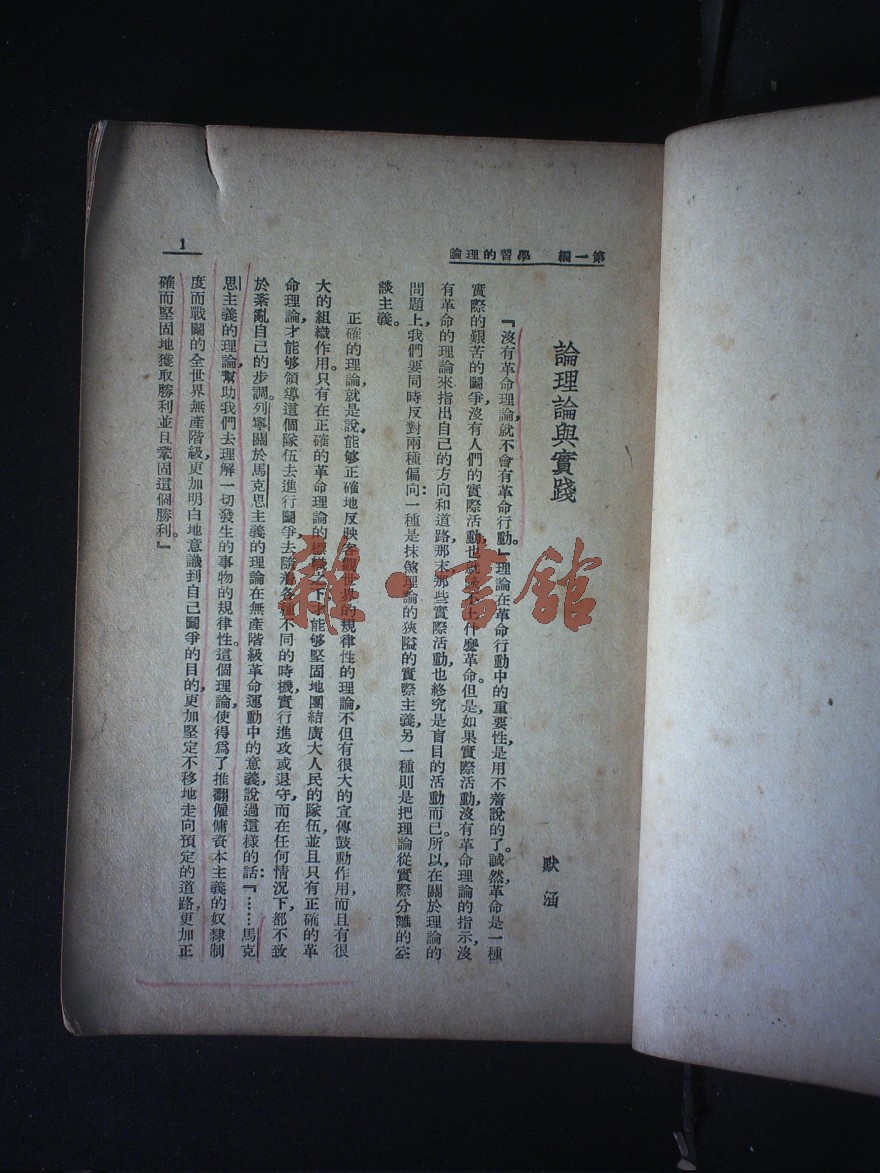 第一編 學習的理論
1
論理論與實踐
默涵
『沒有革命理論,就不會有革命行動。』理論在革命行動中的重要性,是用不着說的了。誠然,革命是一種
實際的艱苦的鬭爭,沒有人們的實際活動,也就談不上什麼革命。但是,如果實際活動,沒有革命理論的指示,沒
有革命的理論來指出自己的方向和道路,那末,那些實際活動,也終究是盲目的活動而已。所以,在關於理論的
問題上,我們要同時反對兩種偏向:一種是抹煞理論的狹隘的實際主義,另一種則是把理論從實際分離的空
談主義。
正確的理論,就是說,能够正確地反映客觀世界的規律性的理論,不但有很大的宣傳鼓動作用,而且有很
大的組織作用。只有在正確的革命理論的旗幟之下,才能够堅固地團結廣大人民的隊伍,並且只有正確的革
命理論,才能够領導這個隊伍去進行鬭爭,去隨着各種不同的時機實行進攻或退守,而在任何情況下,都不致
於紊亂自己的步調。列寧關於馬克思主義的理論在無產階級革命運動中的意義,說過這樣的話:『……馬克
思主義的理論,幫助我們去理解一切發生的事物的規律性。這個理論,使得爲了推翻僱傭資本主義的奴隸制
度而戰鬭的全世界無產階級,更加明白地意識到自己鬭爭的目的,更加堅定不移地走向預定的道路,更加正
確而堅固地獲取勝利並且鞏固這個勝利。』
雜·書館